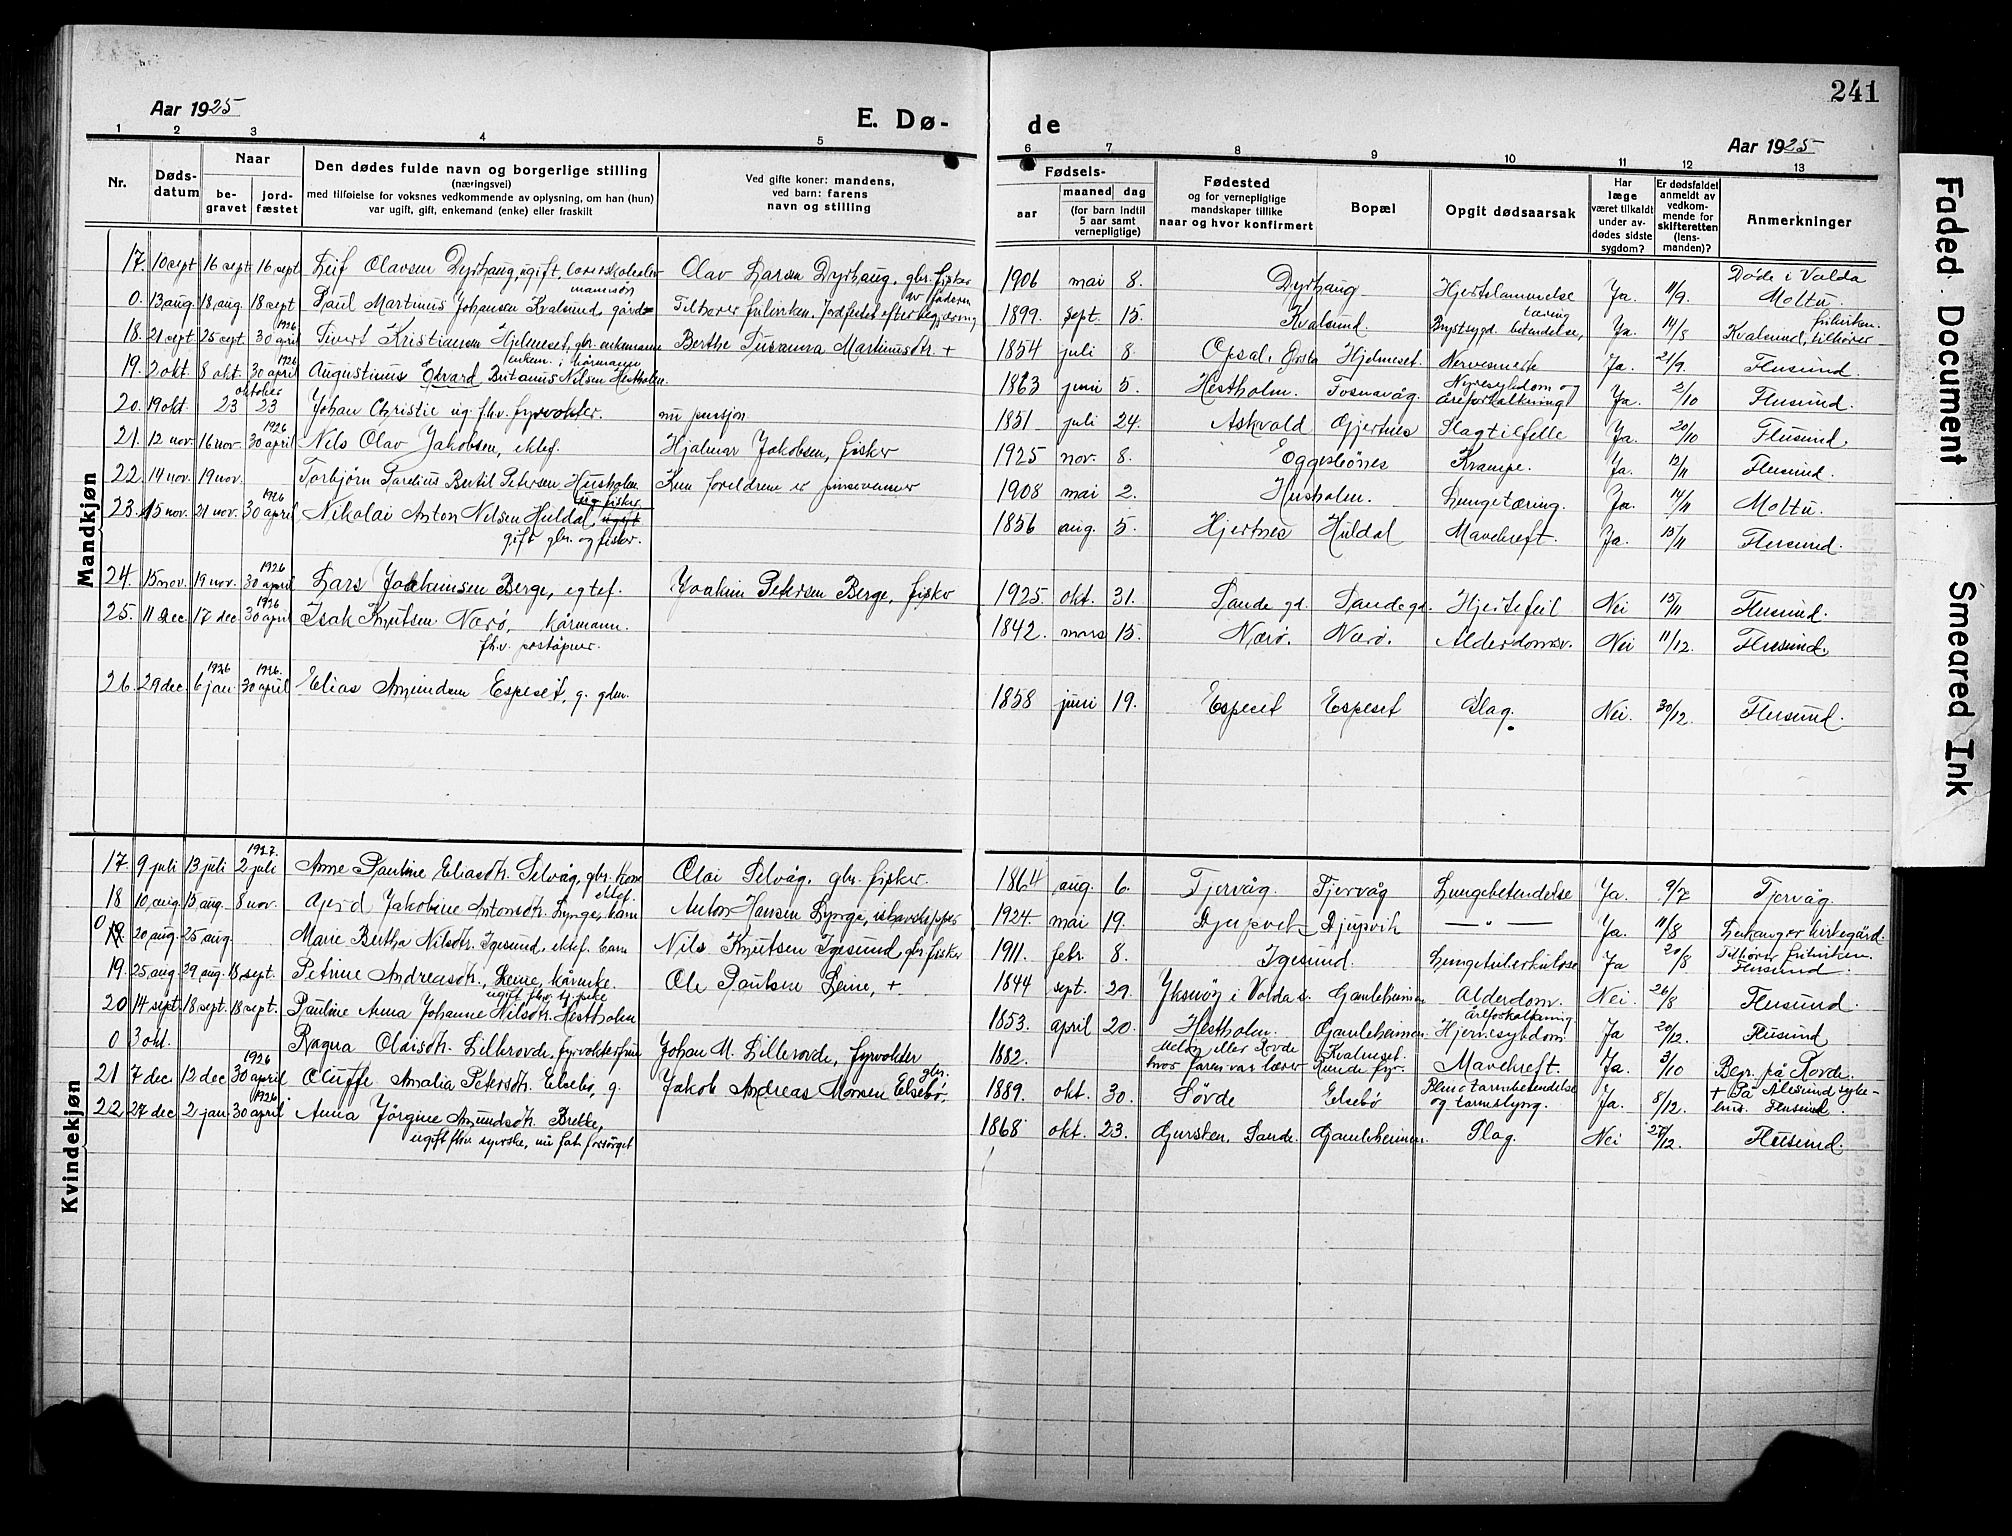 241
Aar 1925
E. Dø- de
Aar 1925
1 2 3 4 5 6 7 8 9 10 11 12 13
Nr.
Døds-
datum
Naar
be-
gravet
jord-
fæstet
Den dødes fulde navn og borgerlige stilling
(næringsvei)
med tilføielse for voksnes vedkommende av oplysning, om han (hun)
var ugift, gift, enkemand (enke) eller fraskilt
Ved gifte koner: mandens,
ved barn: farens
navn og stilling
Fødsels-
aar
maaned dag
(for barn indtil
5 aar samt
vernepligtige)
Fødested
og for vernepligtige
mandskaper tillike
naar og hvor konfirmert
Bopæl
Opgit dødsaarsak
Har
læge
været tilkaldt
under av-
dødes sidste
sygdom?
Er dødsfaldet
anmeldt av
vedkom-
mende for
skifteretten
(lens-
manden)?
Anmerkninger
Mandkjøn
17. 10 sept 16 sept 16 sept Leif Olavsen Dyrhaug, ugift, Olav Larsen Dyrhaug, gbr. fisker 1906 mai 8. Dyrhaug Hjertelammelse Ja. 11/9. Døde i Volda Moltu.
0. 13 aug. 18. aug. 18 sept Paul Martinus Johansen Kvalsund, gårdmannsøn Tilhører frikirken. Jordfestet efter begjæring av faderen 1899. sept. 15. Kvalsund. Brystsygd. betendelse, tæring Ja. 14/8 Kvalsund, tilhører frikirken.
18. 21 sept 25 sept. 1926 30 april Sivert Kristiansen Hjelmeset, gbr. enkemann Berthe Susanna Martinusdtr. + 1854 juli 8. Opsal, Ørsta Hjelmeset. Ja. 21/9. Flusund
19. 2 okt. 8 okt. 1926 30 april Augustinus Edvard Britanus Nilsen Hestholm. enkem. kårmann 1863 juni 5. Hestholm. Fosnavåg. Nyresykdom og åreforkalkning Ja. 2/10 Flusund.
20. 19 okt. 23 oktober 23 Johan Christie ug. fhv. fyrvokter. nu pensjon 1851 juli 24. Askvold Gjertnes Slagtilfelle Ja. 20/10 Flusund.
21. 12 nov. 16 nov. 1926 30 april Nils Olav Jakobsen, ektef. Hjalmar Jakobsen, fisker 1925 nov. 8. Eggesbønes Krampe. Ja. 12/11 Flusund.
22. 14 nov. 19 nov. Torbjørn Parelius Bertil Petersen Husholm ug. fisker Kun foreldrene er pinsevenner 1908 mai 2. Husholm. Lungetæring. Ja. 14/11 Moltu.
23. 15 nov. 21 nov. 1926 30 april Nikolai Anton Nilsen Huldal, ugift
gift gbr. og fisker. 1856 aug. 5. Hjertnes Huldal Mavekreft. Ja. 15/11 Flusund.
24. 15 nov. 19 nov. 1926 30 april Lars Joakimsen Berge, egtef. Joakim Petersen Berge, fisker 1925. okt. 31. Sande gd. Sande gd. Hjertefeil Nei 15/11 Flusund.
25. 11 dec 17 dec 1926 30 april Isak Knutsen Nærø, kårmann.
fhv. poståpner. 1842. mars 15. Nærø. Nærø. Alderdomsv. Nei 11/12. Flusund.
26. 29 dec. 1926 6 jan 1926. 30 april Elias Amundsen Espeset, g. gdm. 1858 juni 19. Espeset Espeset Slag. Nei. 30/12. Flusund.
Kvindekjøn
17. 9 juli 13 juli 1927. 2 juli Anne Pauline Eliasdtr. Selvåg, gbr. kone Olai Selvåg, gbr. fisker. 1864 aug. 6. Tjervåg. Tjervåg Lungebetendelse Ja. 9/7 Tjervåg.
18 10 aug. 15 aug. 8 nov. Gerd Jakobine Antonsdtr. Lynge, ektef. barn Anton Hansen Lynge, ishavsskipper 1924. mai 19. Djupvik Djupvik — " — Ja. 11/8 Leikanger kirkegård.
0 19. 20 aug. 25 aug. Marie Bertha Nilsdtr. Igesund, ektef. barn Nils Knutsen Igesund, gbr. fisker 1911. febr. 8. Igesund. Lungetuberkulose Ja 20/8 Tilhører frikirken. Flusund.
19. 25 aug. 29 aug. 18 sept. Petrine Andreasdtr. Leine, kårenke. Ole Paulsen Leine, + 1844 sept. 29. Yksnøy i Volda s. Gamleheimen Alderdom. Nei. 26/8 Flusund.
20 14 sept. 18 sept. 18 sept. Pauline Anna Johanne Nilsdtr. Hestholm 1853. april 20. Hestholm. Gamleheimen. Hjernesykdom. Ja 20/12. Flusund
0 3 okt. Ragna Olaisdtr. Lillerovde, fyrvokterfrue Johan M. Lillerovde, fyrvokter 1882. hvor faren var lærer Kvalneset. Runde fyr. Mavekreft. Ja. 3/10 Begr. på Rovde.
21 7 dec 12 dec 1926 30 april Oluffe Amalia Petersdtr. Elsebø, g. Jakob Andreas Monsen Elsebø, gbr. 1889. okt. 30. Søvde Elsebø og tarmslyng. Ja. 8/12. + På Ålesund syke-
hus. Flusund.
22. 27 dec 2 jan. 1926 30 april Anna Jørgine Amundsdtr. Brekke,
ugift fhv. syerske, nu fat. forsørget 1868. okt. 23. Gursken, Sande. Gamleheimen. Slag. Nei 27/12. Flusund.
Faded Document
Smeared Ink